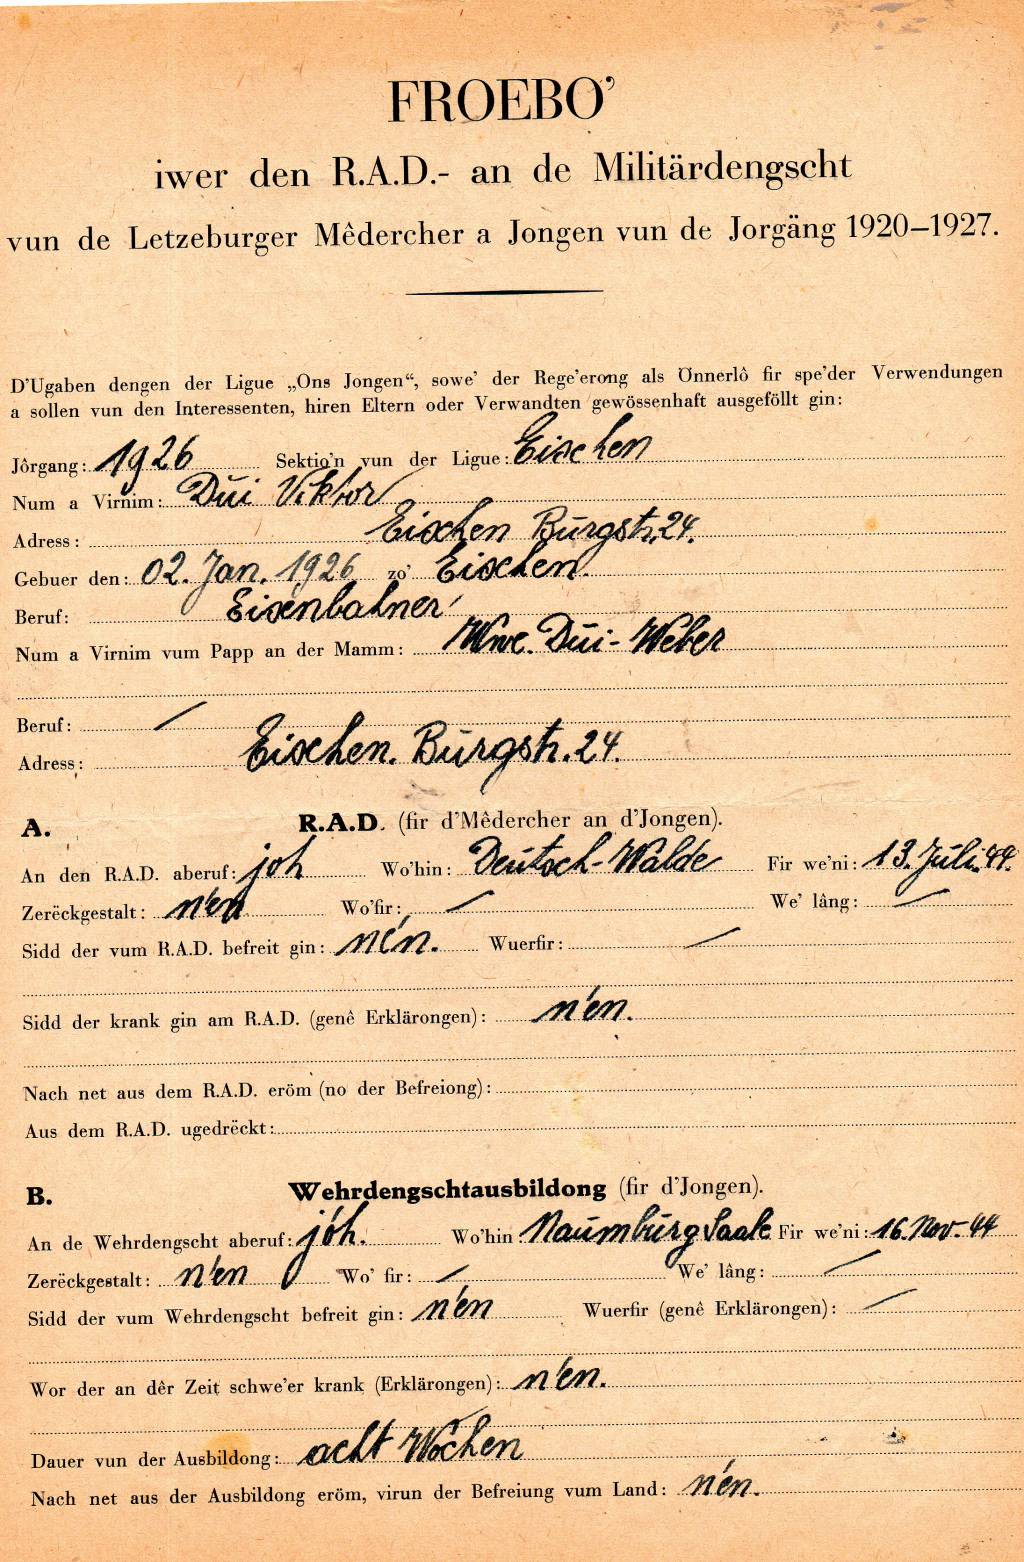 FROEBO'
iwer den R.A.D.- an de Militärdengscht
vun de Letzeburger Mêdercher a Jongen vun de Jorgäng 1920–1927.
D'Ugaben dengen der Ligue „Ons Jongen“, sowe' der Rege'erong als Önnerlô fir spe'der Verwendungen
a sollen vun den Interessenten, hiren Eltern oder Verwandten gewössenhaft ausgeföllt gin:
Jôrgang: 1926 Sektio'n vun der Ligue: Eischen
Num a Virnim: Düi Viktor
Adress: Eischen Burgstr. 24.
Gebuer den: 02. Jan. 1926 zo' Eischen.
Beruf: Eisenbahner
Num a Virnim vum Papp an der Mamm: Wwe. Düi-Weber
Beruf: /
Adress: Eischen. Burgstr. 24.
A. R.A.D. (fir d'Mêdercher an d'Jongen).
An den R.A.D. aberuf: joh Wo'hin: Deutsch-Walde Fir we'ni: 13. Juli. 44.
Zerëckgestalt: n'en Wo'fir: / We' lâng: /
Sidd der vum R.A.D. befreit gin: nén. Wuerfir: /
Sidd der krank gin am R.A.D. (genê Erklärongen): n'en.
Nach net aus dem R.A.D. eröm (no der Befreiong):
Aus dem R.A.D. ugedrëckt:
B. Wehrdengschtausbildong (fir d'Jongen).
An de Wehrdengscht aberuf: jóh. Wo'hin: Naumburg Saale Fir we'ni: 16. Nov. 44
Zerëckgestalt: n'en Wo' fir: / We' lâng: /
Sidd der vum Wehrdengscht befreit gin: n'én Wuerfir (genê Erklärongen): /
Wor der an dêr Zeit schwe'er krank (Erklärongen): n'en.
Dauer vun der Ausbildong: acht Wochen
Nach net aus der Ausbildong eröm, virun der Befreiung vum Land: n'én.